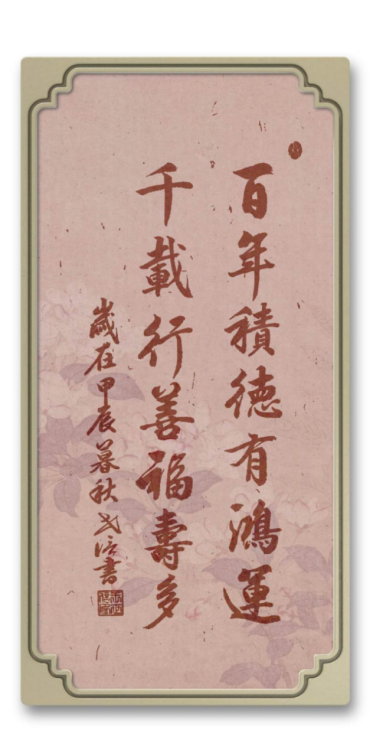 百年積德有鴻運
千載行善福壽多
歲在甲辰暮秋 書